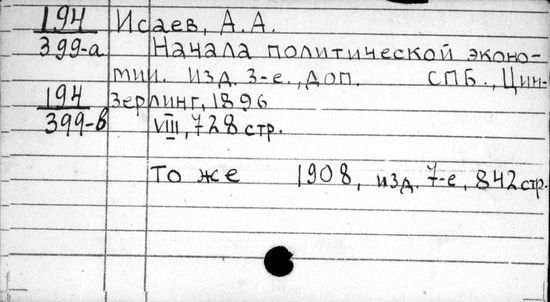 194 Исаев, А.А.
399-а Начала политической эконо-
мии. Изд. 3-е., доп. СПБ., Цин-
194 зерлинг, 1896
399-в VIII, 728 стр.
То же 1908, изд. 7-е, 842 стр.